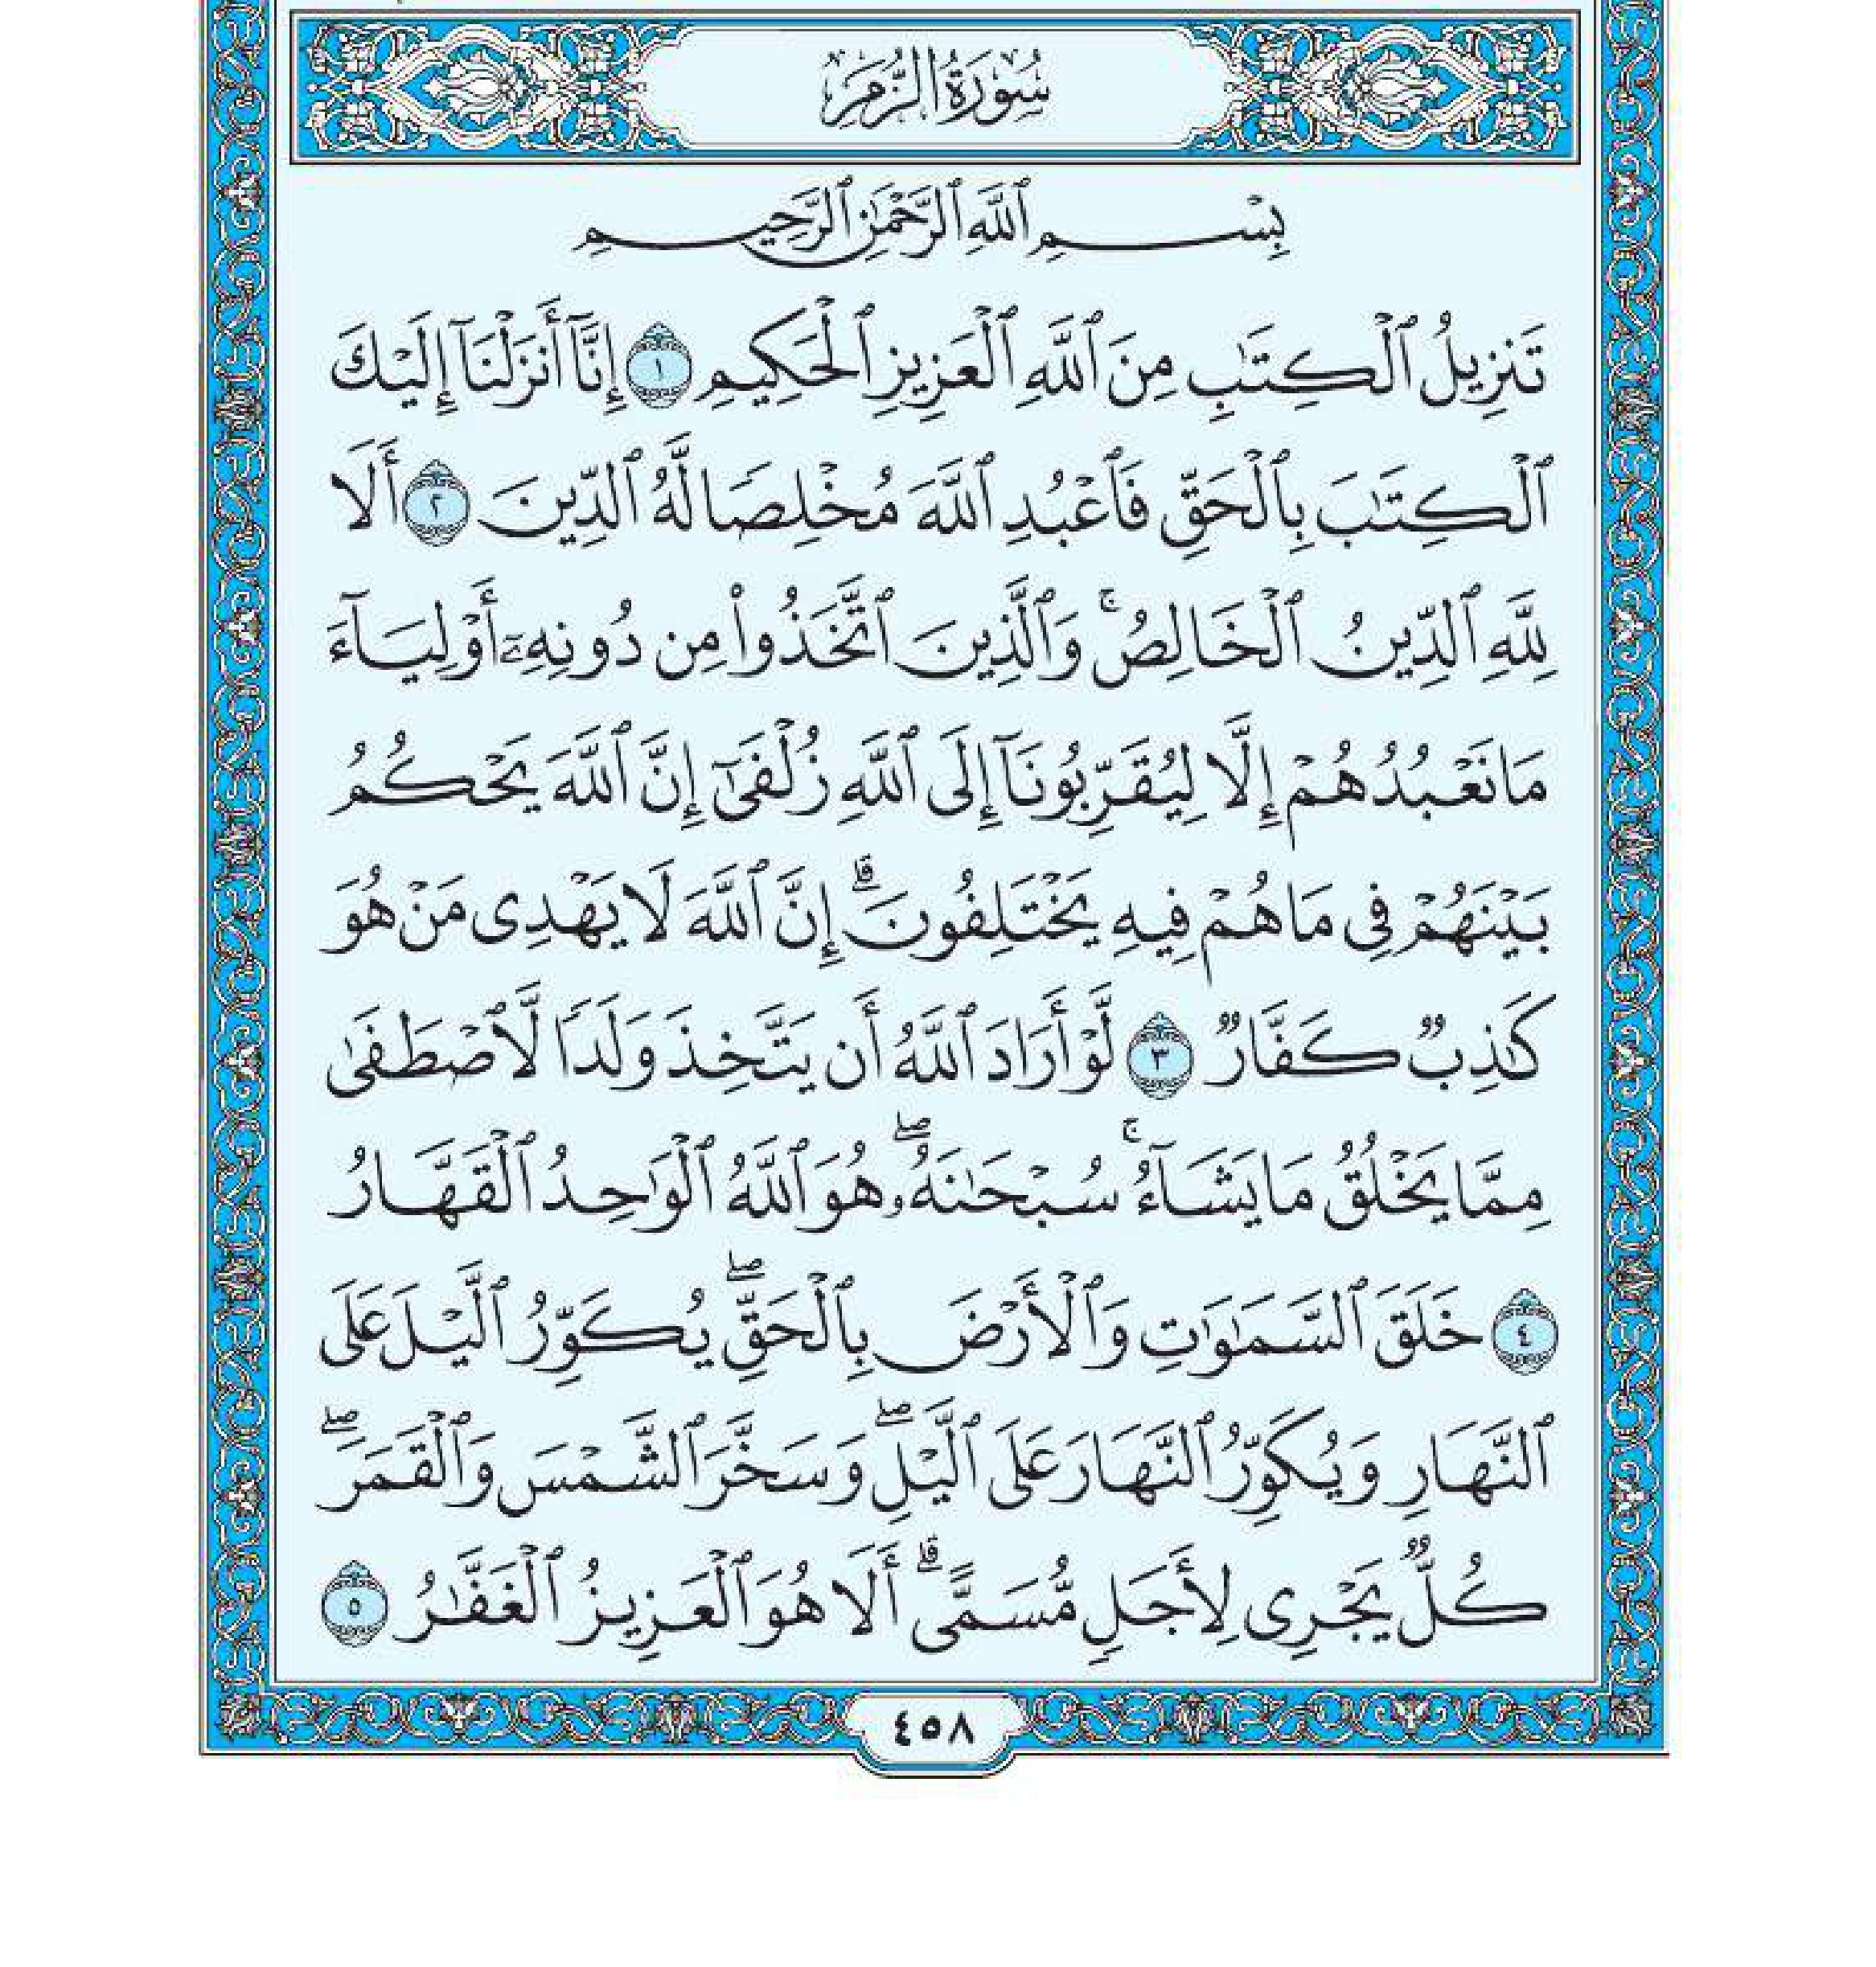 سُورَةُ الزُّمَرِ
بِسْمِ ٱللَّهِ ٱلرَّحْمَٰنِ ٱلرَّحِيمِ
تَنزِيلُ ٱلْكِتَٰبِ مِنَ ٱللَّهِ ٱلْعَزِيزِ ٱلْحَكِيمِ ١ إِنَّآ أَنزَلْنَآ إِلَيْكَ
ٱلْكِتَٰبَ بِٱلْحَقِّ فَٱعْبُدِ ٱللَّهَ مُخْلِصًا لَّهُ ٱلدِّينَ ٢ أَلَا
لِلَّهِ ٱلدِّينُ ٱلْخَالِصُ ۚ وَٱلَّذِينَ ٱتَّخَذُوا۟ مِن دُونِهِۦٓ أَوْلِيَآءَ
مَا نَعْبُدُهُمْ إِلَّا لِيُقَرِّبُونَآ إِلَى ٱللَّهِ زُلْفَىٰٓ إِنَّ ٱللَّهَ يَحْكُمُ
بَيْنَهُمْ فِى مَا هُمْ فِيهِ يَخْتَلِفُونَ ۗ إِنَّ ٱللَّهَ لَا يَهْدِى مَنْ هُوَ
كَٰذِبٌ كَفَّارٌ ٣ لَّوْ أَرَادَ ٱللَّهُ أَن يَتَّخِذَ وَلَدًا لَّٱصْطَفَىٰ
مِمَّا يَخْلُقُ مَا يَشَآءُ ۚ سُبْحَٰنَهُۥ ۖ هُوَ ٱللَّهُ ٱلْوَٰحِدُ ٱلْقَهَّارُ
٤ خَلَقَ ٱلسَّمَٰوَٰتِ وَٱلْأَرْضَ بِٱلْحَقِّ ۖ يُكَوِّرُ ٱلَّيْلَ عَلَى
ٱلنَّهَارِ وَيُكَوِّرُ ٱلنَّهَارَ عَلَى ٱلَّيْلِ ۖ وَسَخَّرَ ٱلشَّمْسَ وَٱلْقَمَرَ ۖ
كُلٌّ يَجْرِى لِأَجَلٍ مُّسَمًّى ۗ أَلَا هُوَ ٱلْعَزِيزُ ٱلْغَفَّٰرُ ٥
٤٥٨